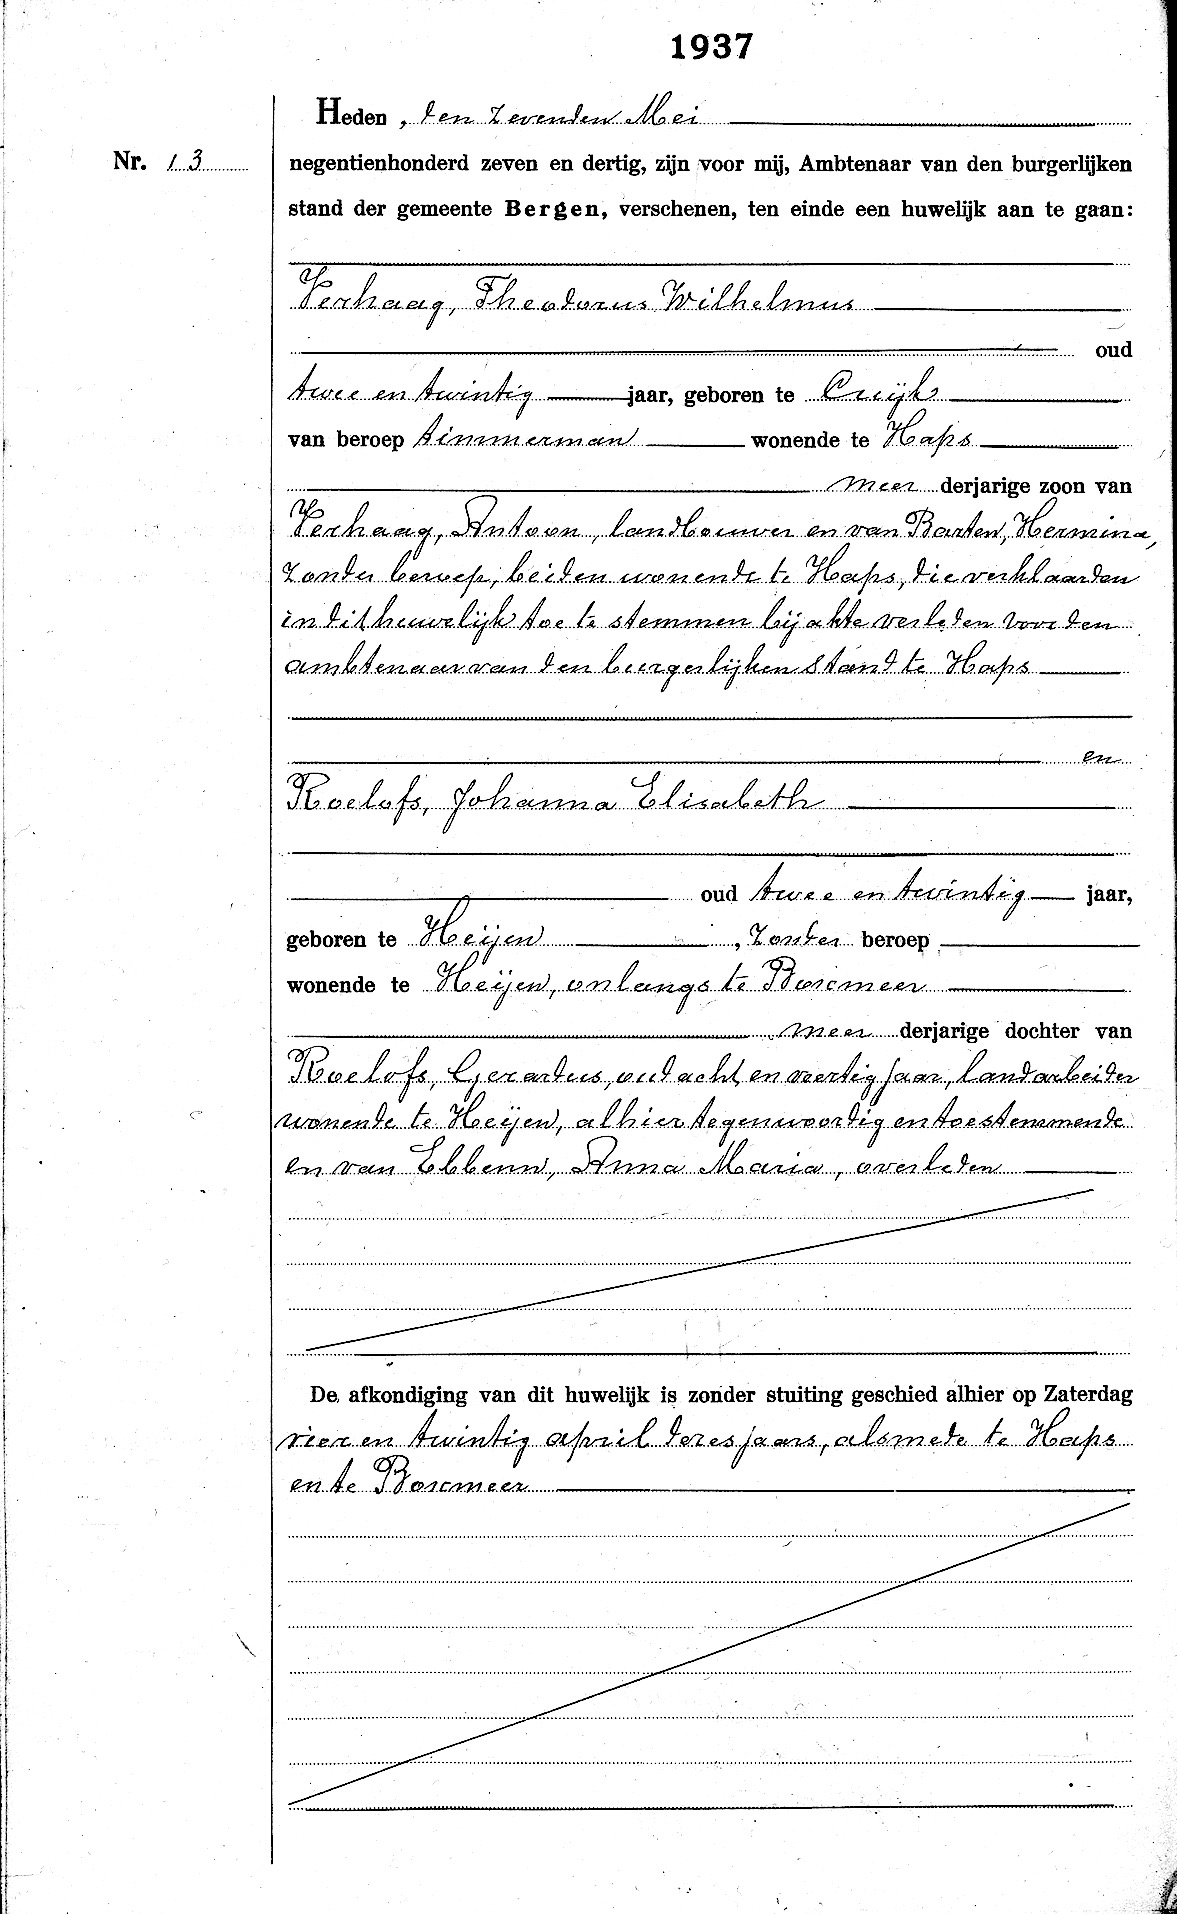 1937
Heden, den zevenden Mei
Nr. 13 negentienhonderd zeven en dertig, zijn voor mij, Ambtenaar van den burgerlijken
stand der gemeente Bergen, verschenen, ten einde een huwelijk aan te gaan:
Verhaag, Theodorus Wilhelmus
oud
twee en twintig jaar, geboren te Cuijk
van beroep timmerman wonende te Haps
meer derjarige zoon van
Verhaag, Antoon, landbouwer en van Barten, Hermina,
zonder beroep, beiden wonende te Haps, die verklaarden
in dit huwelijk toe te stemmen bij akte verleden voor den
ambtenaar van den burgerlijken stand te Haps
en
Roelofs, Johanna Elisabeth
oud twee en twintig jaar,
geboren te Heijen, zonder beroep
wonende te Heijen, onlangs te Boxmeer
meer derjarige dochter van
Roelofs, Gerardus, oud acht en veertig jaar, landarbeider
wonende te Heijen, alhier tegenwoordig en toestemmende
en van Ebbenn, Anna Maria, overleden
De afkondiging van dit huwelijk is zonder stuiting geschied alhier op Zaterdag
vier en twintig april dezes jaars, alsmede te Haps
en te Boxmeer